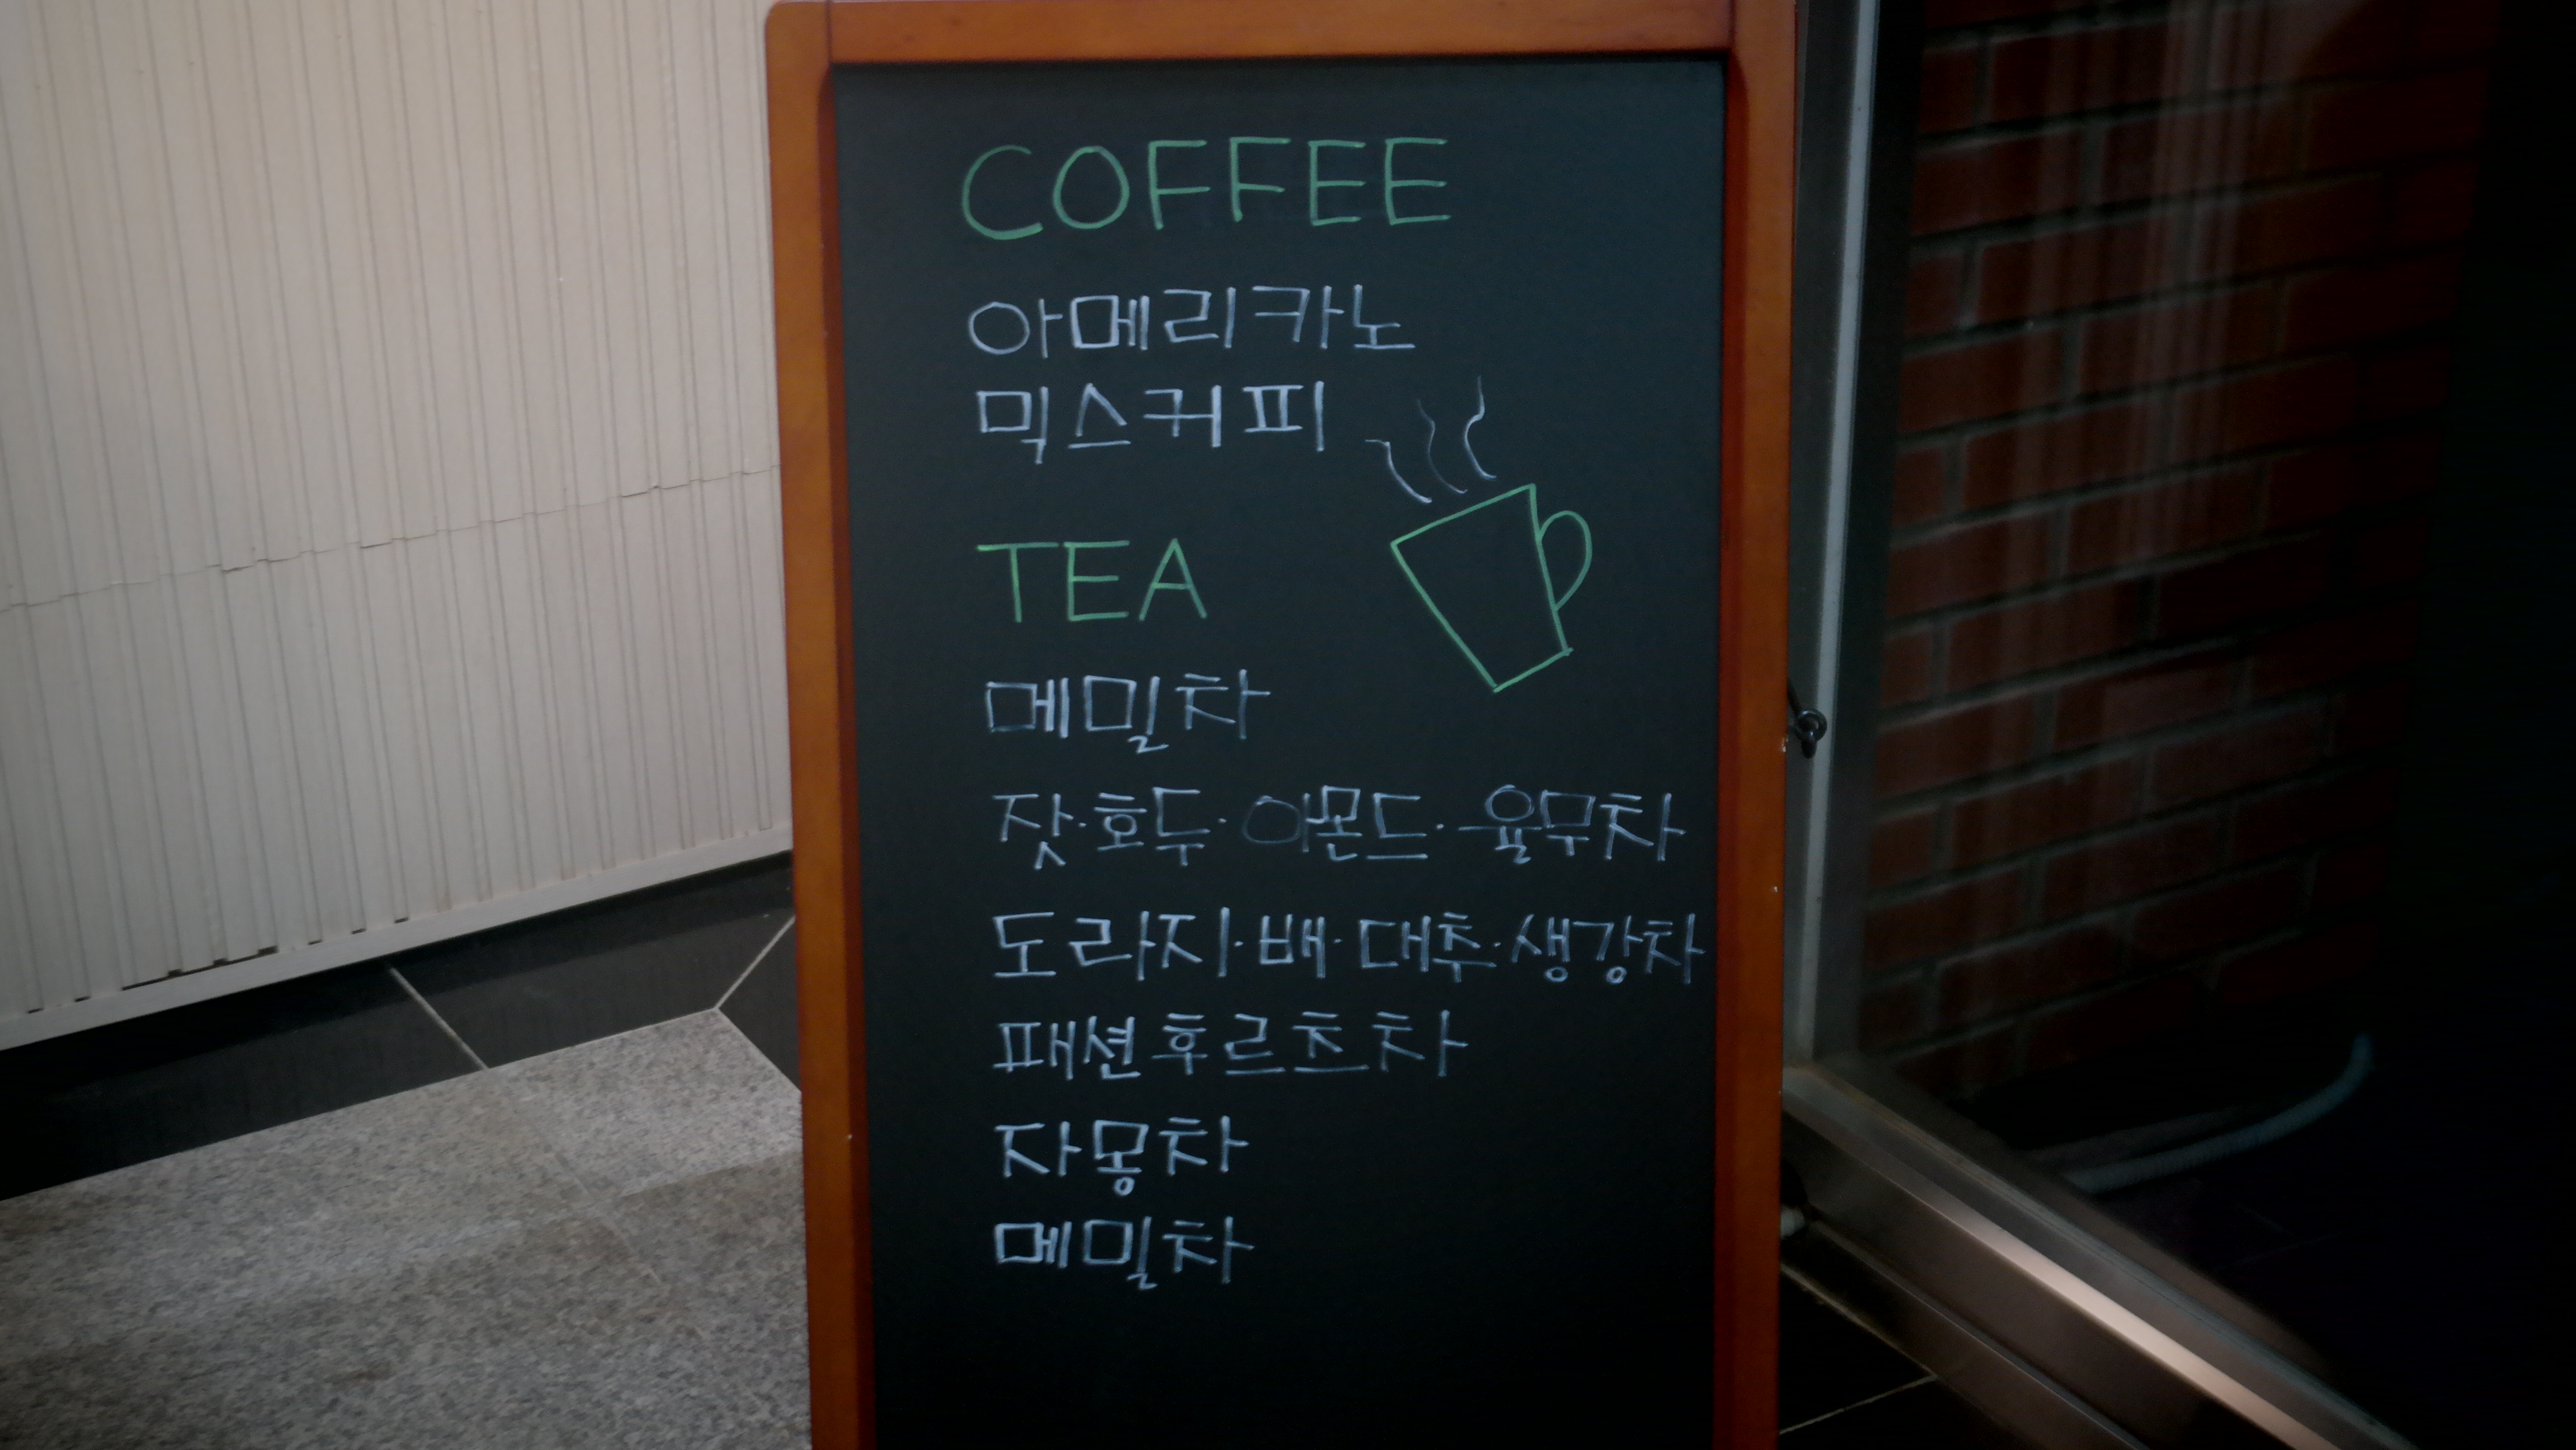 COFFEE
아메리카노
믹스커피
TEA
메밀차
잣·호두·아몬드·율무차
도라지·배·대추·생강차
패션후르츠차
자몽차
메밀차